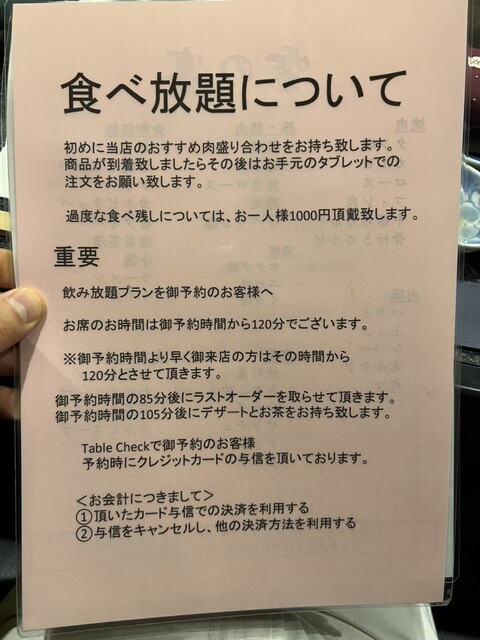 食べ放題について
初めに当店のおすすめ肉盛り合わせをお持ち致します。
商品が到着致しましたらその後はお手元のタブレットでの
注文をお願い致します。
過度な食べ残しについては、お一人様1000円頂戴致します。
重要
飲み放題プランを御予約のお客様へ
お席のお時間は御予約時間から120分でございます。
※御予約時間より早く御来店の方はその時間から
120分とさせて頂きます。
御予約時間の85分後にラストオーダーを取らせて頂きます。
御予約時間の105分後にデザートとお茶をお持ち致します。
Table Checkで御予約のお客様
予約時にクレジットカードの与信を頂いております。
＜お会計につきまして＞
①頂いたカード与信での決済を利用する
②与信をキャンセルし、他の決済方法を利用する